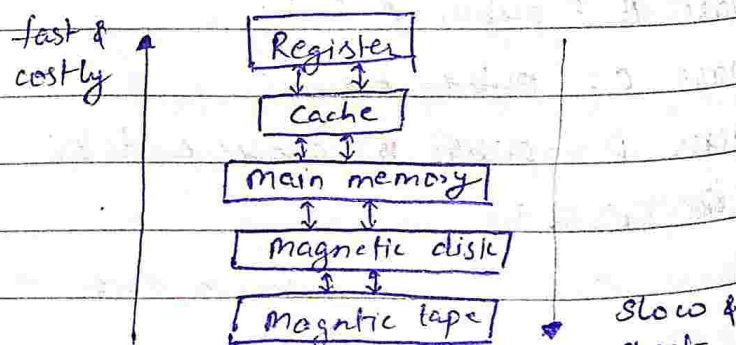 fast &
costly
Register
Cache
main memory
magnetic disk
magntic tape
Slow &